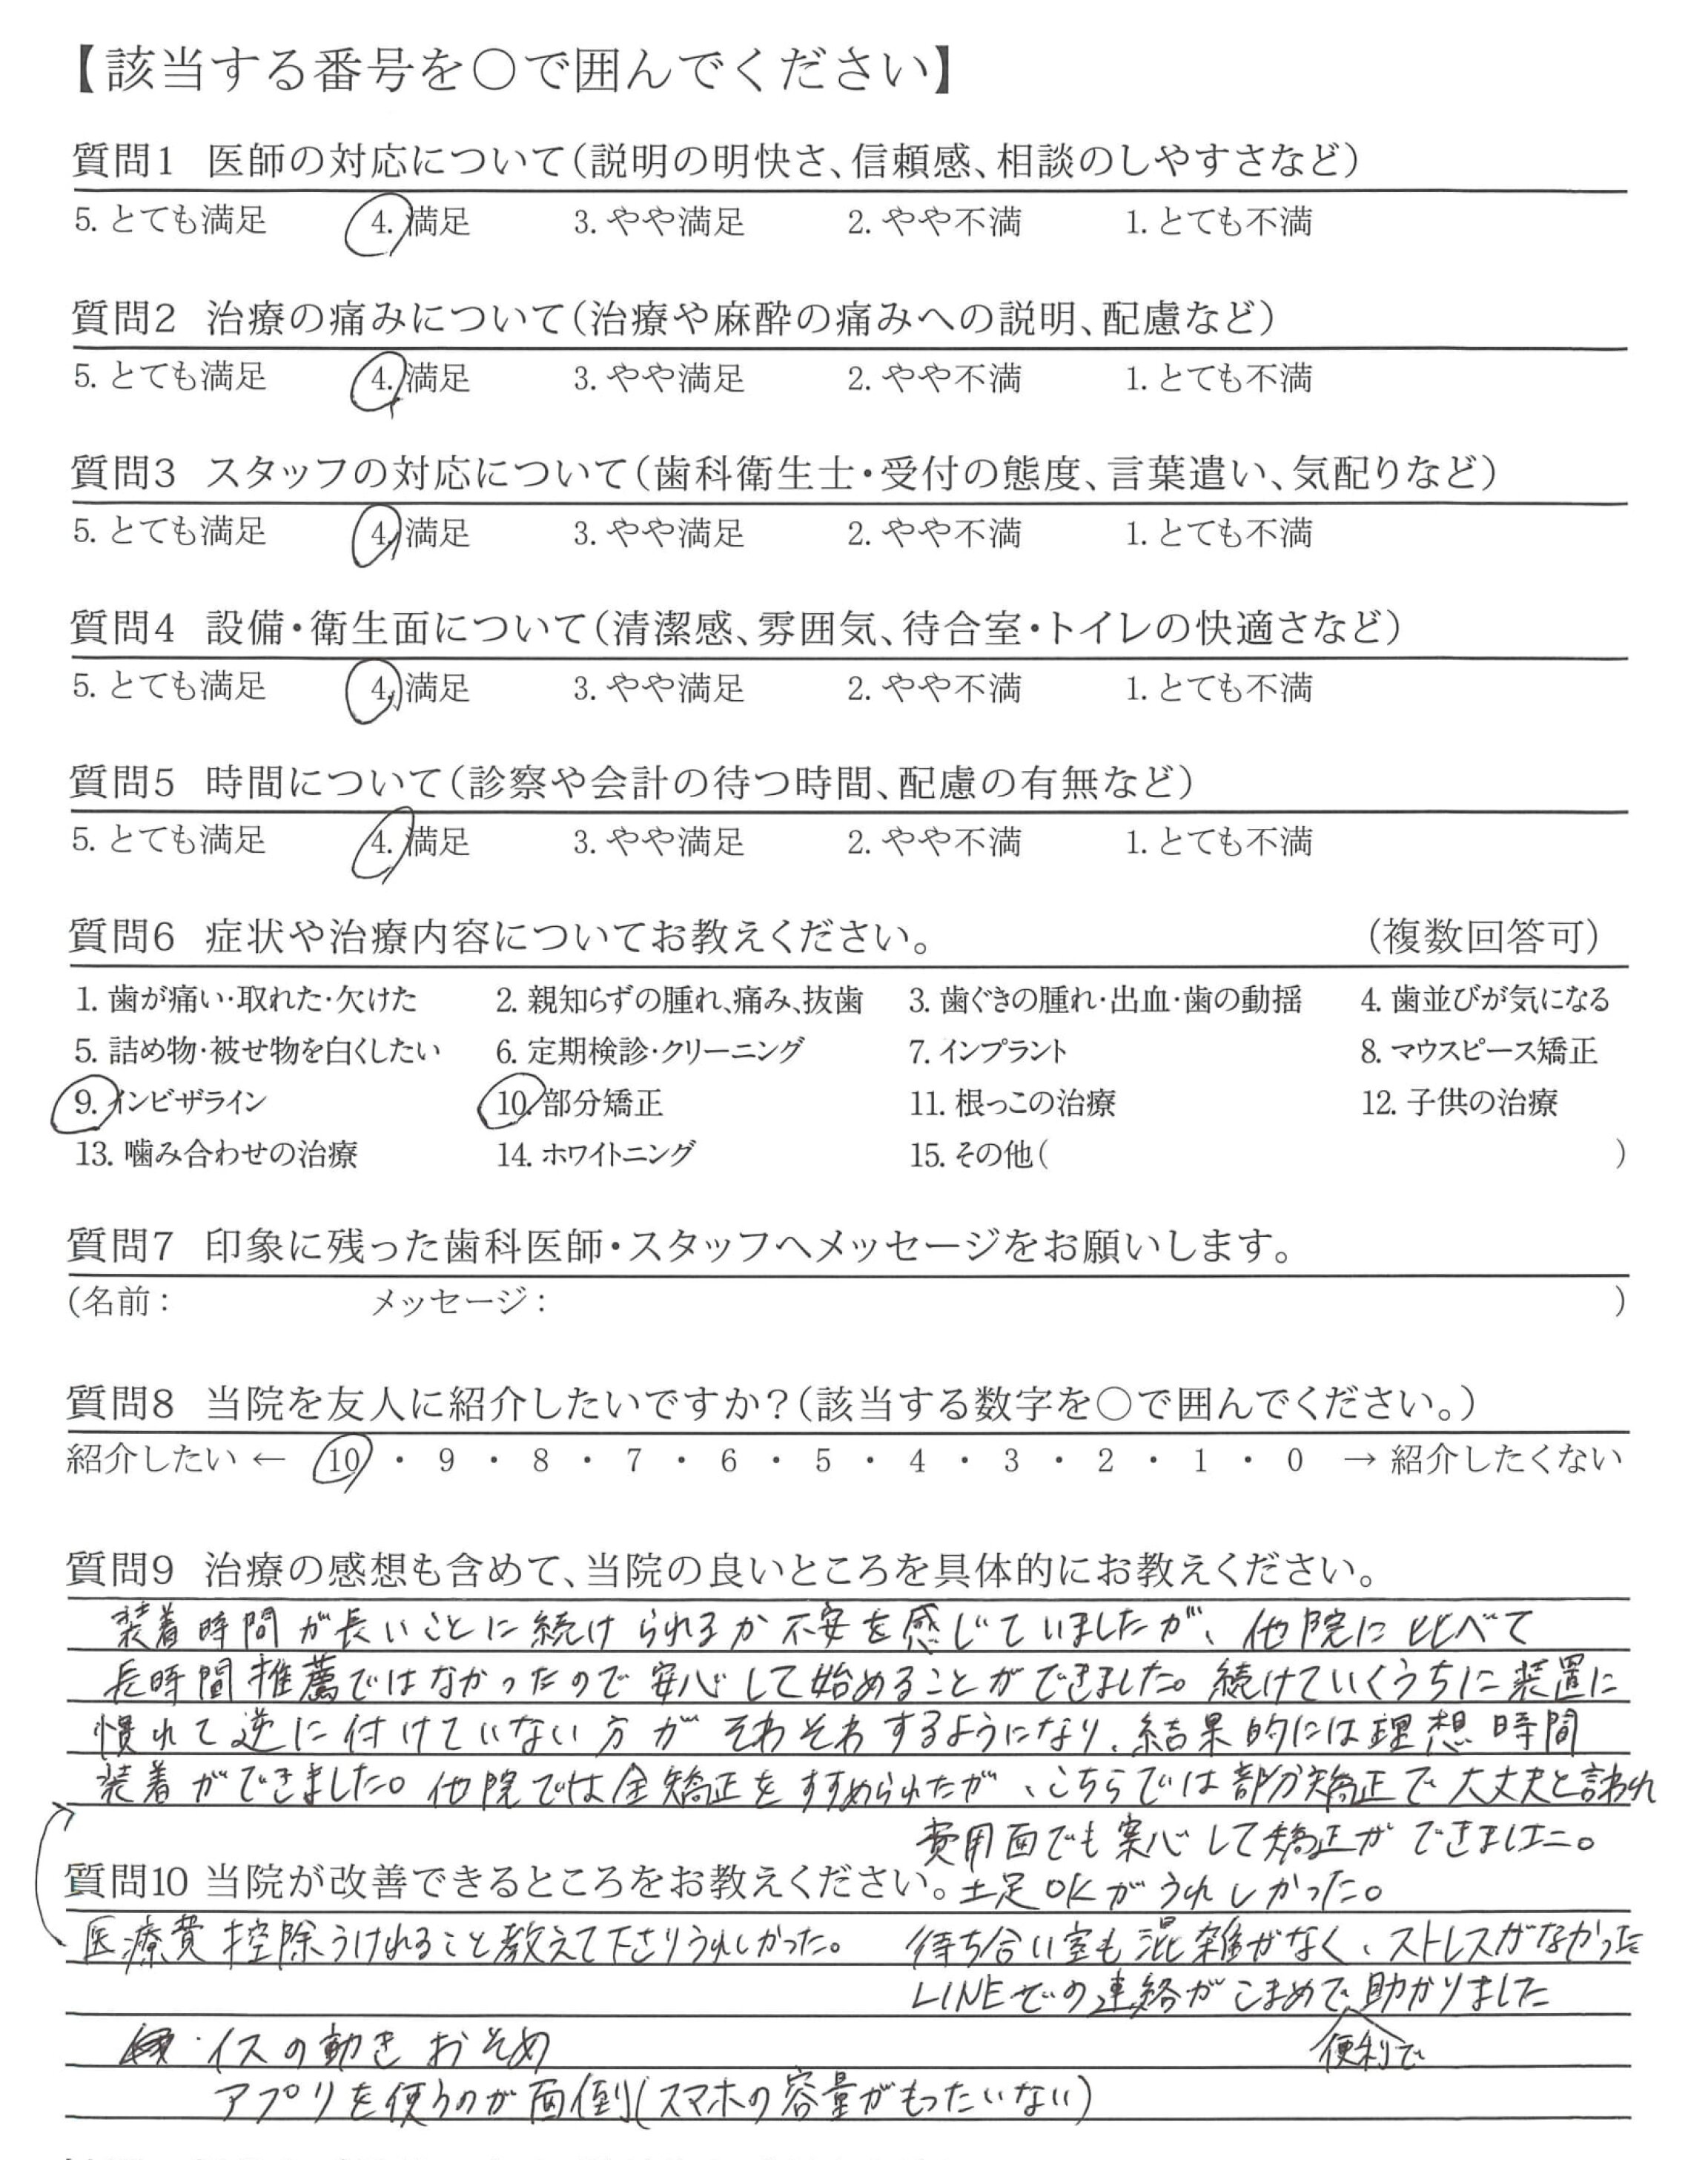 【該当する番号を○で囲んでください】
質問1 医師の対応について(説明の明快さ、信頼感、相談のしやすさなど)
5. とても満足 4. 満足 3. やや満足 2. やや不満 1. とても不満
質問2 治療の痛みについて(治療や麻酔の痛みへの説明、配慮など)
5. とても満足 4. 満足 3. やや満足 2. やや不満 1. とても不満
質問3 スタッフの対応について(歯科衛生士・受付の態度、言葉遣い、気配りなど)
5. とても満足 4. 満足 3. やや満足 2. やや不満 1. とても不満
質問4 設備・衛生面について(清潔感、雰囲気、待合室・トイレの快適さなど)
5. とても満足 4. 満足 3. やや満足 2. やや不満 1. とても不満
質問5 時間について(診察や会計の待つ時間、配慮の有無など)
5. とても満足 4. 満足 3. やや満足 2. やや不満 1. とても不満
質問6 症状や治療内容についてお教えください。 (複数回答可)
1. 歯が痛い・取れた・欠けた 2. 親知らずの腫れ、痛み、抜歯 3. 歯ぐきの腫れ・出血・歯の動揺 4. 歯並びが気になる
5. 詰め物・被せ物を白くしたい 6. 定期検診・クリーニング 7. インプラント 8. マウスピース矯正
9. インビザライン 10. 部分矯正 11. 根っこの治療 12. 子供の治療
13. 噛み合わせの治療 14. ホワイトニング 15. その他( )
質問7 印象に残った歯科医師・スタッフへメッセージをお願いします。
(名前: メッセージ: )
質問8 当院を友人に紹介したいですか?(該当する数字を○で囲んでください。)
紹介したい ← 10 ・ 9 ・ 8 ・ 7 ・ 6 ・ 5 ・ 4 ・ 3 ・ 2 ・ 1 ・ 0 → 紹介したくない
質問9 治療の感想も含めて、当院の良いところを具体的にお教えください。
装着時間が長いことに続けられるか不安を感じていましたが、他院に比べて
長時間推薦ではなかったので安心して始めることができました。続けていくうちに装置に
慣れて逆に付けていない方がそわそわするようになり、結果的には理想時間
装着ができました。他院では全矯正をすすめられたが、こちらでは部分矯正で大丈夫と言われ
費用面でも安心して矯正ができました。
質問10 当院が改善できるところをお教えください。
土足OKがうれしかった。
医療費控除うけれること教えて下さりうれしかった。 待ち合い室も混雑がなく、ストレスがなかった
LINEでの連絡がこまめで助かりました
便利で
・イスの動きおそめ
アプリを使うのが面倒(スマホの容量がもったいない)